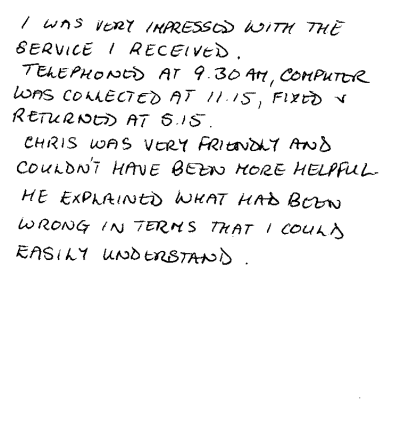 I WAS VERY IMPRESSED WITH THE
SERVICE I RECEIVED.
TELEPHONED AT 9.30 AM, COMPUTER
WAS COLLECTED AT 11.15, FIXED &
RETURNED AT 5.15.
CHRIS WAS VERY FRIENDLY AND
COULDN'T HAVE BEEN MORE HELPFUL
HE EXPLAINED WHAT HAD BEEN
WRONG IN TERMS THAT I COULD
EASILY UNDERSTAND.